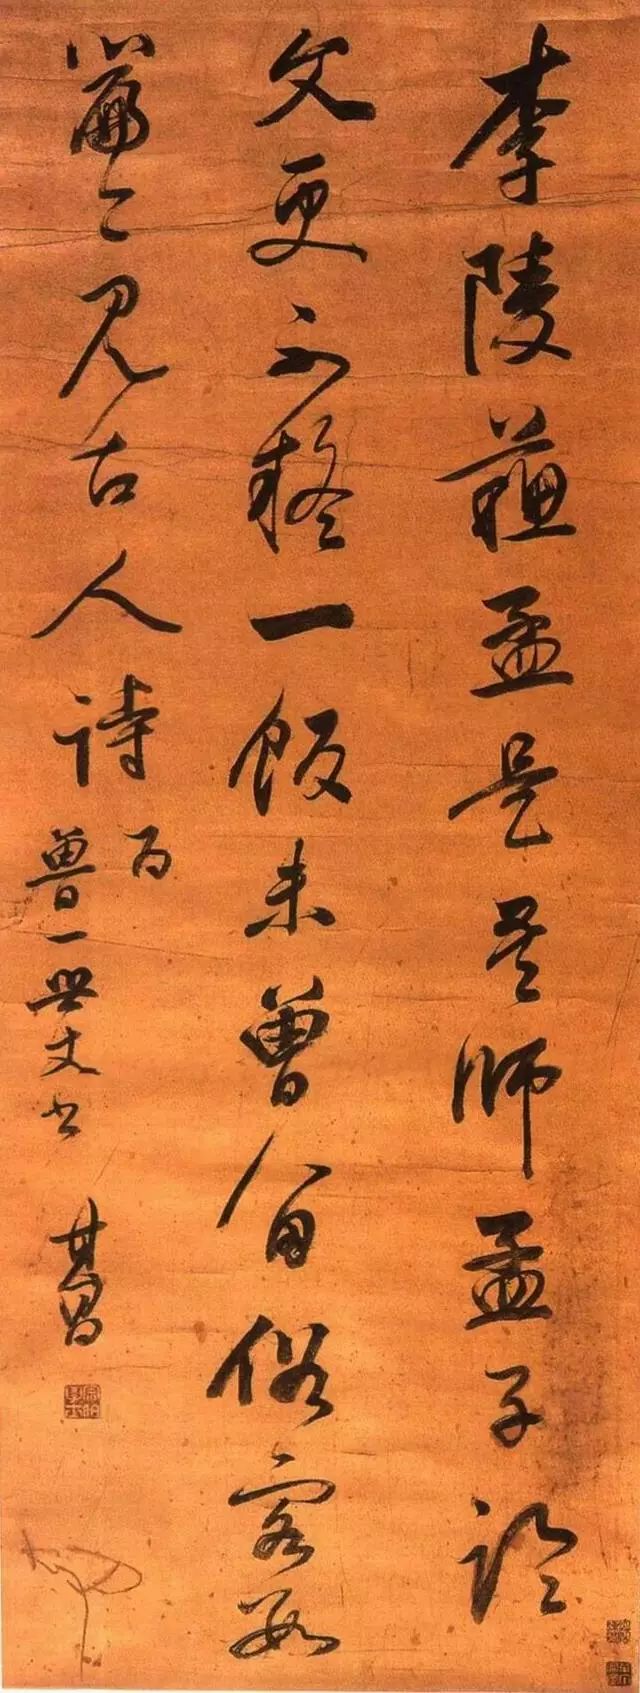 李陵蘓孟是吾師孟子論
文更不疑一飯未曾留俗客數
篇今見古人詩為
魯一世丈書
其昌
宗伯學士